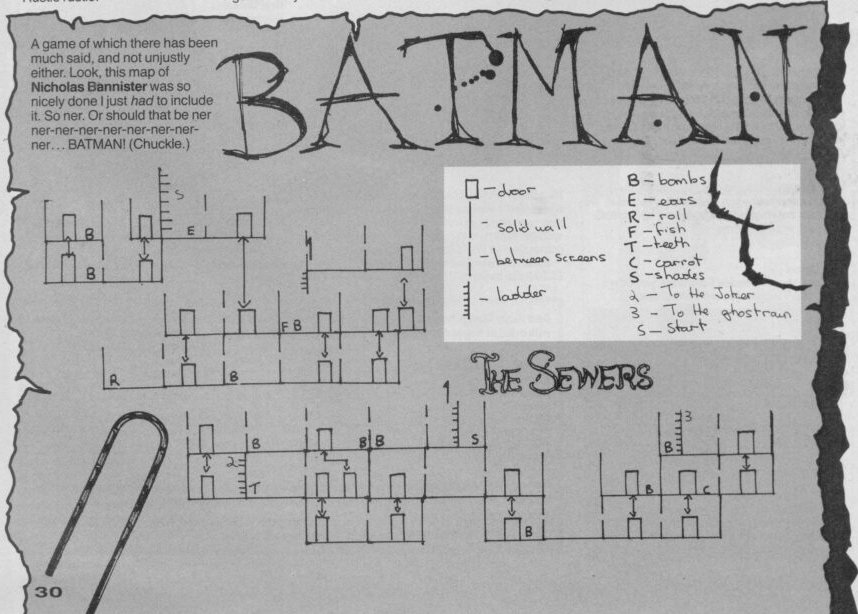 BATMAN
A game of which there has been
much said, and not unjustly
either. Look, this map of
Nicholas Bannister was so
nicely done I just had to include
it. So ner. Or should that be ner
ner-ner-ner-ner-ner-ner-ner-
ner... BATMAN! (Chuckle.)
- door
- solid wall
- between screens
- ladder
B - bombs
E - ears
R - roll
F - fish
T - teeth
C - carrot
S - shades
2 - To the Joker
3 - To the ghostrain
S - Start
S
B
E
B
F B
R
B
THE SEWERS
1
3
B
B
B
S
B
2
T
B
C
B
30